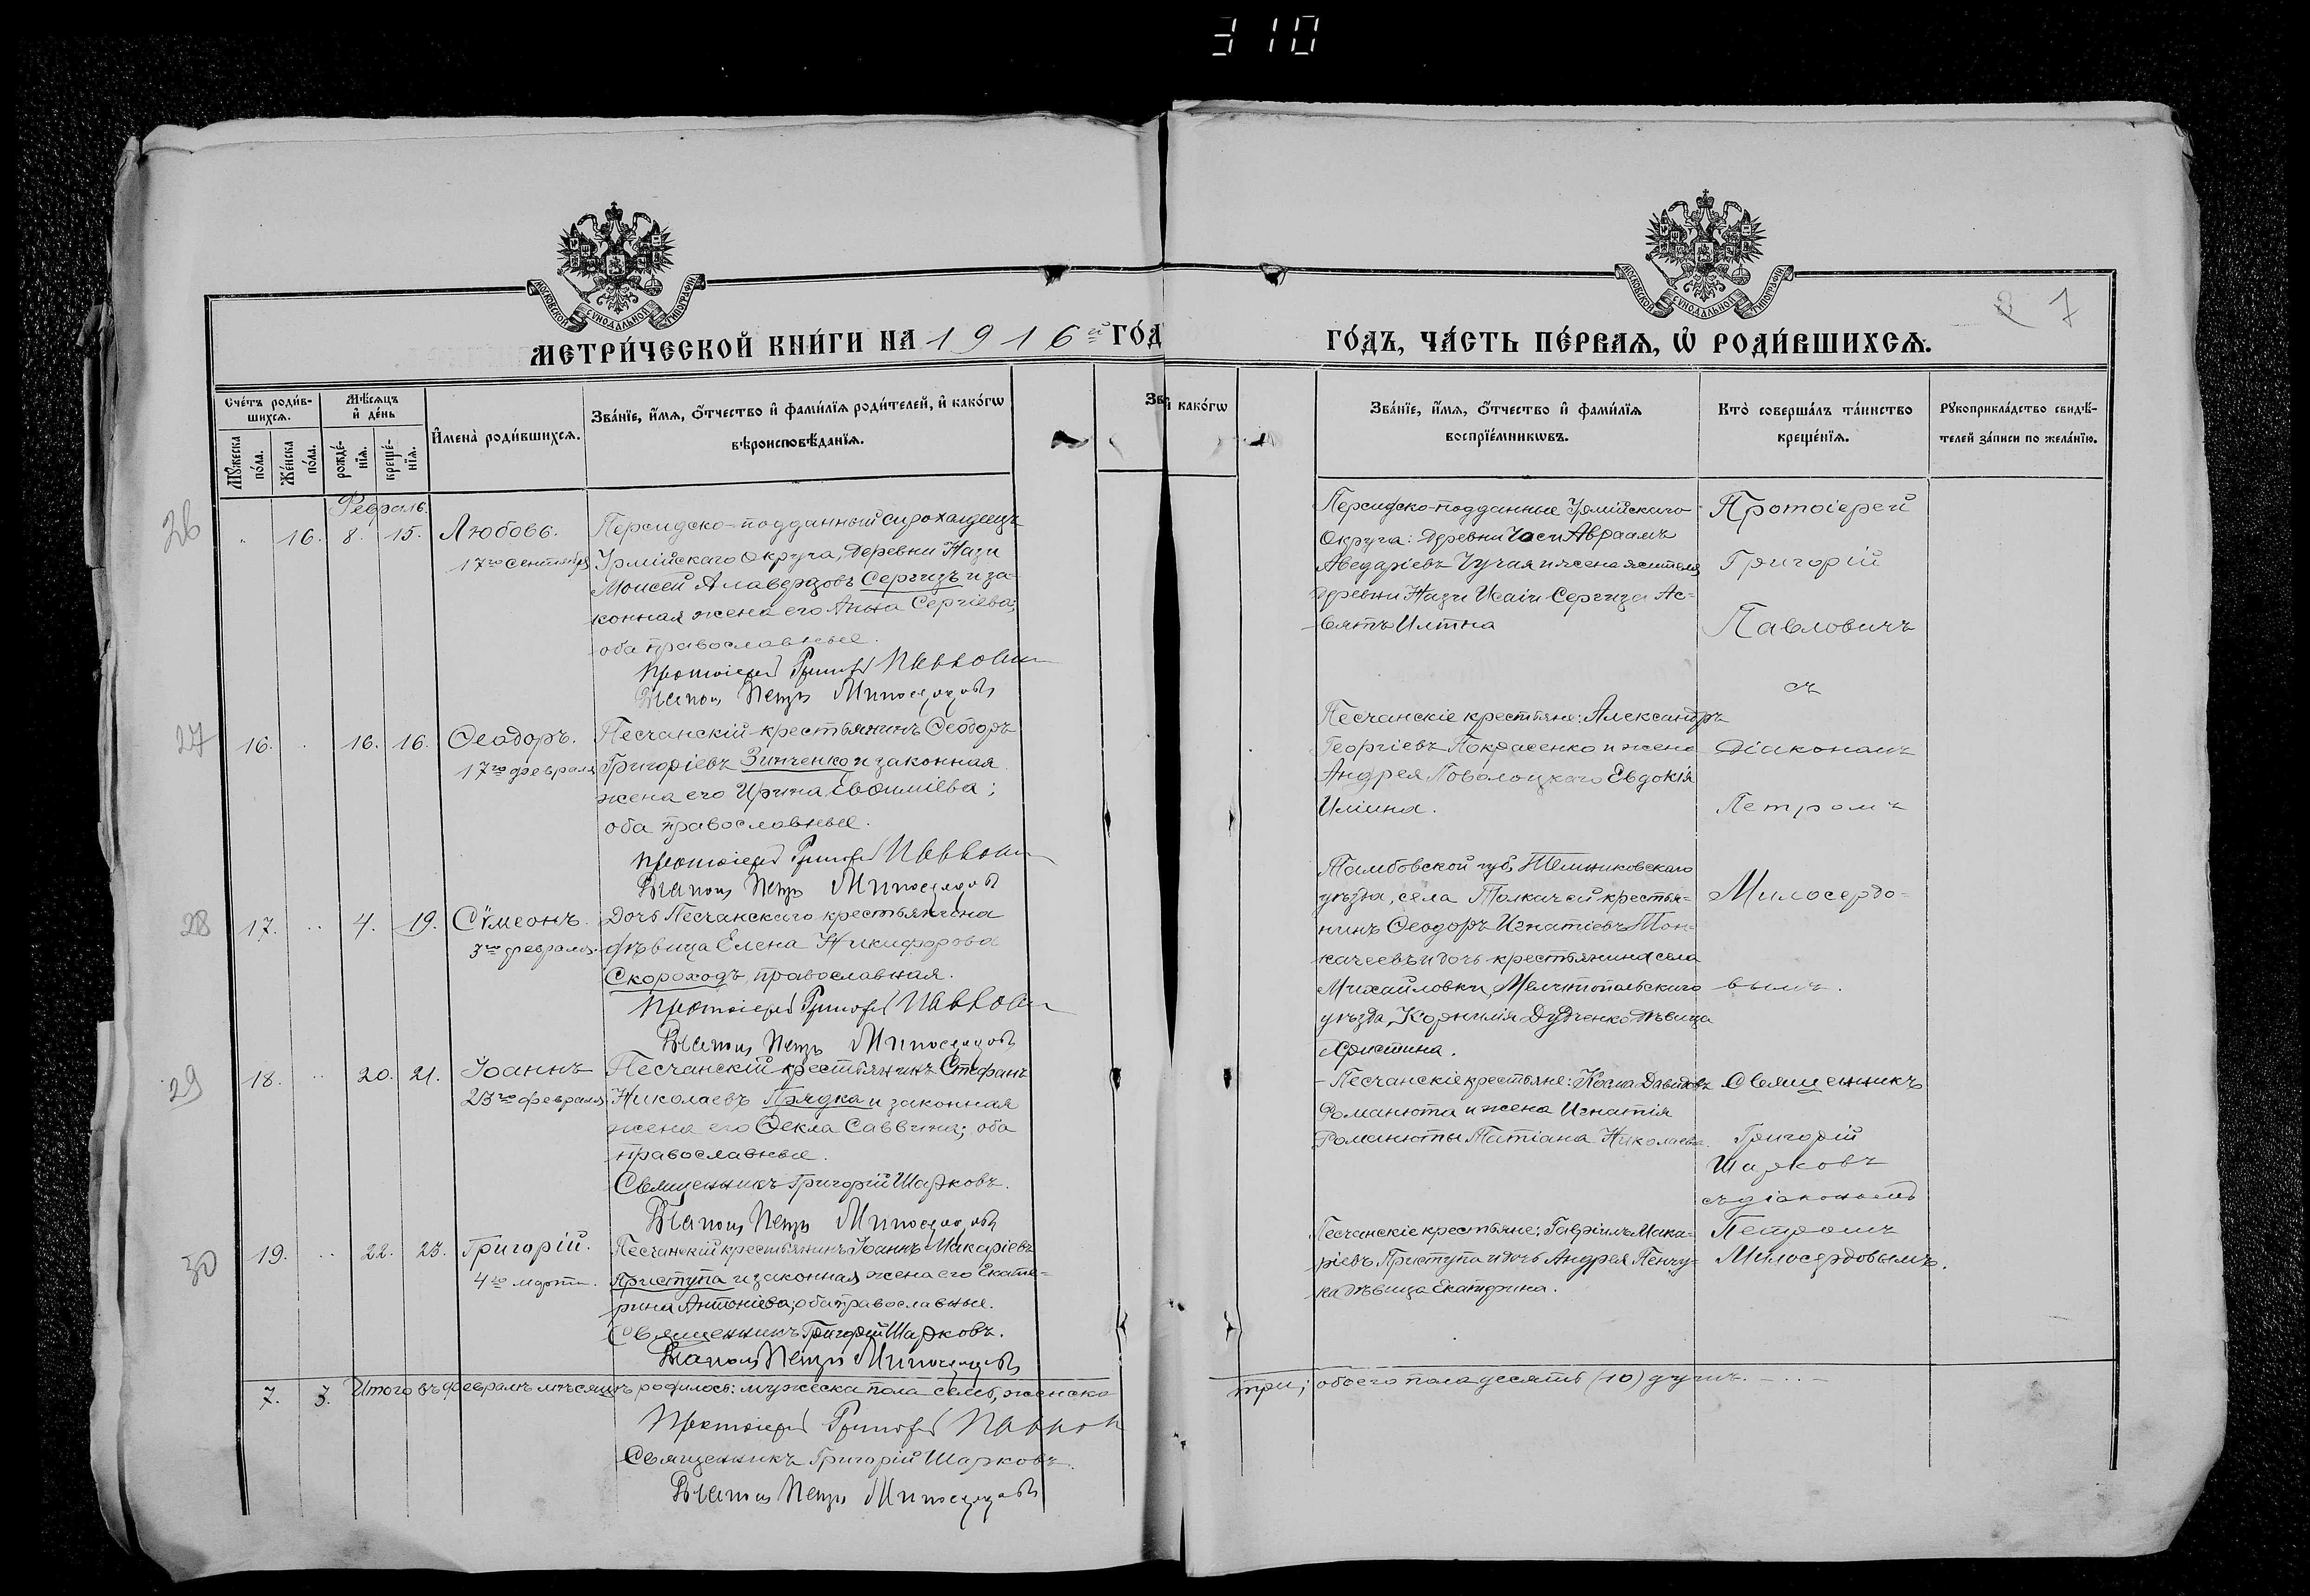 310
МОСКОВСКОЙ СУНОДАЛЬНОЙ ТИПОГРАФІИ
МОСКОВСКОЙ СУНОДАЛЬНОЙ ТИПОГРАФІИ
7
МЕТРИ́ЧЕСКОЙ КНИ́ГИ НА 1916й ГО́Д
ГО́ДЪ, ЧА́СТЬ ПЕ́РВАѦ, Ѽ РОДИ́ВШИХСѦ.
Сче́тъ роди́в-
шихсѧ.
Мꙋ́жеска
по́ла.
Же́нска
по́ла.
Мѣ́сѧцъ
и҆ де́нь
рожде́-
нїѧ.
креще́-
нїѧ.
И҆мена̀ роди́вшихсѧ.
Зва́нїе, и҆́мѧ, ѻ҆́тчество и҆ фами́лїѧ роди́телей, и҆ како́гѡ
вѣроисповѣ́данїѧ.
Зв
и҆ како́гѡ
Зва́нїе, и҆́мѧ, ѻ҆́тчество и҆ фами́лїѧ
воспрїе́мникѡвъ.
Кто̀ соверша́лъ та́инство
креще́нїѧ.
Рꙋкоприкла́дство свидѣ́-
телей за́писи по жела́нїю.
Февраль.
26
16. 8. 15. Любовь.
17го сентября
Персидско-подданный сирохалдеецъ
Урмійскаго Округа, Деревни Нази
Моисей Алавердовъ Сергизъ и за-
конная жена его Анна Сергіева;
оба православные.
Протоіерей Григорій Павловичъ
Діаконъ Петръ Милосердовъ
Персидско-подданные Урмійскаго
Округа: Деревни Часи Авраамъ
жена жителя
Деревни Нази Исаіи Сергиза Ас-
Протоіерей
Григорій
Павловичъ
съ
Діакономъ
Петромъ
Милосердо-
вымъ.
27
16. 16. 16. Ѳеодоръ.
17го февраля
Песчанскій крестьянинъ Ѳеодоръ
Григоріевъ Зинченко и законная
жена его Ирина Евѳиміева;
оба православные.
Протоіерей Григорій Павловичъ
Діаконъ Петръ Милосердовъ
Песчанскіе крестьяне: Александръ
Георгіевъ Покрасенко и жена
Андрея Поволоцкаго Евдокія
Иліина.
28
17. 4. 19. Сѵмеонъ.
3го февраля.
Дочь Песчанскаго крестьянина
дѣвица Елена Никифорова
Скороходъ, православная.
Протоіерей Григорій Павловичъ
Діаконъ Петръ Милосердовъ
Тамбовской губ, Темниковскаго
уѣзда, села Толкачей крестья-
нинъ Ѳеодоръ Игнатіевъ Тол-
качеевъ и дочь крестьянина села
Михайловки, Мелитопольскаго
уѣзда, Корнилія Дудченко дѣвица
Христина.
29
18. 20. 21. Іоаннъ
23го февраля.
Песчанскій крестьянинъ Стефанъ
Николаевъ Прядка и законная
жена его Ѳекла Саввина; оба
православные.
Священникъ Григорій Шарковъ.
Діаконъ Петръ Милосердовъ
Песчанскіе крестьяне: Косма Давидовъ
Романюта и жена Игнатія
Романюты Татіана Николаева.
Священникъ
Григорій
Шарковъ
съ діакономъ
Петромъ
Милосердовымъ.
30
19. 22. 23. Григорій.
4го марта.
Песчанскій крестьянинъ Іоаннъ Макаріевъ
Приступа и законная жена его Екате-
рина Антоніева; оба православные.
Священникъ Григорій Шарковъ.
Діаконъ Петръ Милосердовъ
Песчанскіе крестьяне: Гавріилъ Мака-
ріевъ Приступа и дочь Андрея Пенчу-
ка дѣвица Екатерина.
7. 3. Итого въ февралѣ мѣсяцѣ родилось: мужеска пола семь, женска
три; обоего пола десять (10) душъ.
Протоіерей Григорій Павловичъ
Священникъ Григорій Шарковъ.
Діаконъ Петръ Милосердовъ